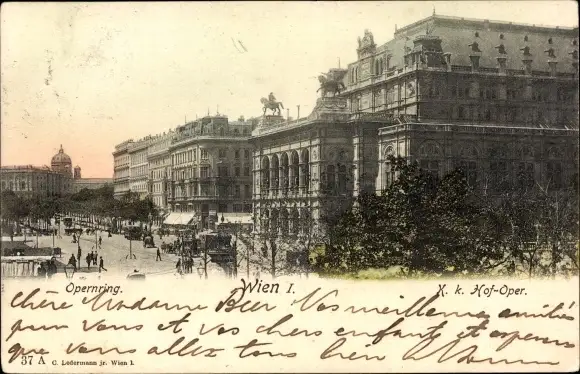 Opernring. Wien I. K. k. Hof-Oper.
Chère Madame Bier Vos meilleures amitiés
pour vous et vos chers enfants et j'espère
que vous allez tous bien
37 A C. Ledermann jr. Wien I.